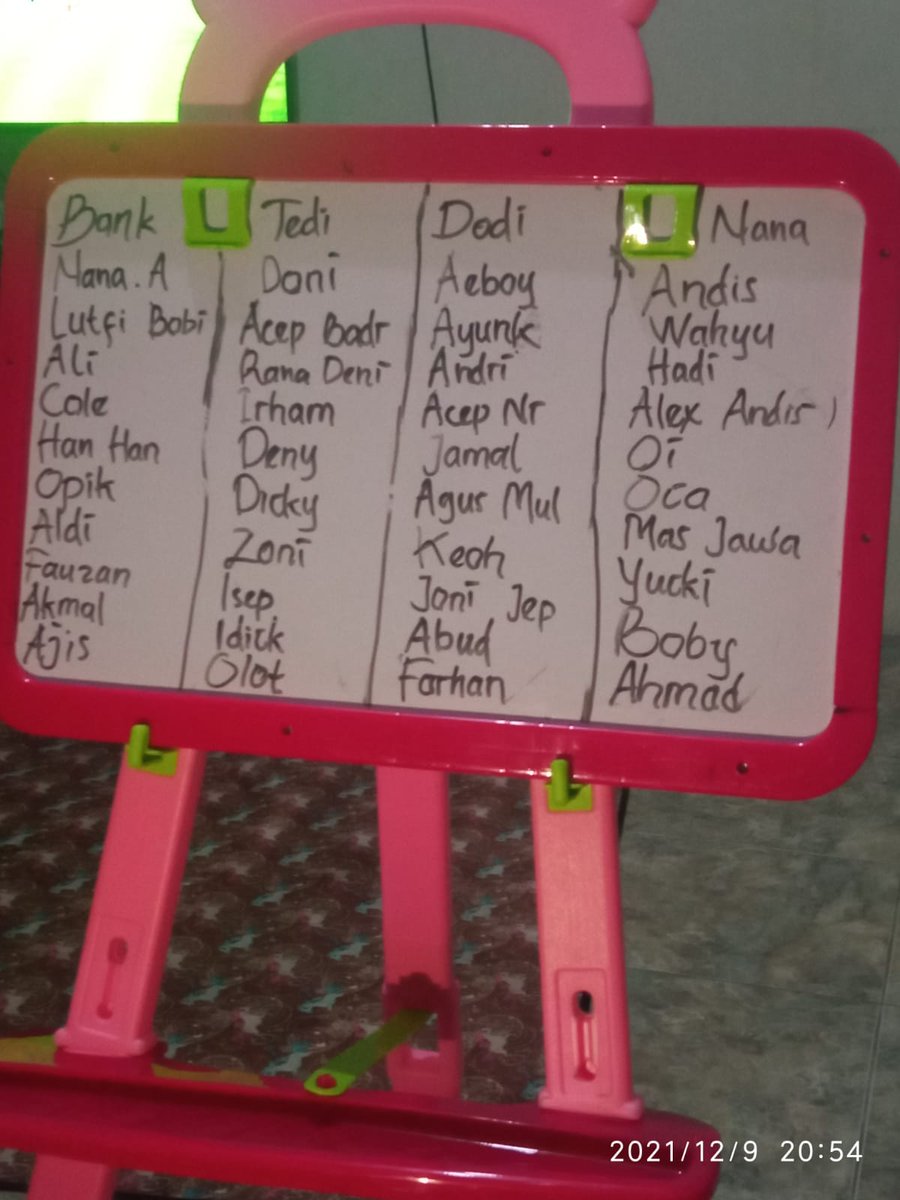 Bank
Nana. A
Lutfi Bobi
Ali
Cole
Han Han
Opik
Aldi
Fauzan
Akmal
Ajis
Tedi
Doni
Acep Badr
Rana Deni
Irham
Deny
Dicky
Zoni
Isep
Idick
Olot
Dodi
Aeboy
Ayunk
Andri
Acep Nr
Jamal
Agus Mul
Keoh
Joni Jep
Abud
Farhan
Nana
Andis
Wahyu
Hadi
Alex Andis )
Oi
Oca
Mas Jawa
Yucki
Boby
Ahmad
2021/12/9 20:54